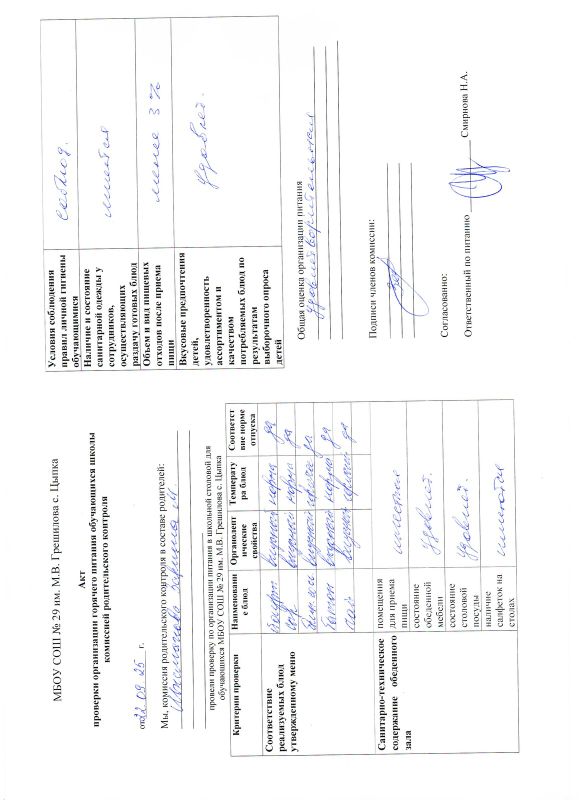 МБОУ СОШ № 29 им. М.В. Грешилова с. Цыпка
Акт
проверки организации горячего питания обучающихся школы
комиссией родительского контроля
от 22 09 25 г.
Мы, комиссия родительского контроля в составе родителей:
провели проверку по организации питания в школьной столовой для
обучающихся МБОУ СОШ № 29 им. М.В. Грешилова с. Цыпка
Критерии проверки
Наименовани
е блюд
Органолепт
ические
свойства
Температу
ра блюд
Соответст
вие норме
отпуска
Соответствие
реализуемых блюд
утвержденному меню
норма да
норма да
норма да
норма да
норма да
Санитарно-техническое
содержание обеденного
зала
помещения
для приема
пищи
состояние
обеденной
мебели
удовлет.
состояние
столовой
посуды
удовлет.
наличие
салфеток на
столах
имеются
Условия соблюдения
правил личной гигиены
обучающимися
соблюд.
Наличие и состояние
санитарной одежды у
сотрудников,
осуществляющих
раздачу готовых блюд
имеется
Объем и вид пищевых
отходов после приема
пищи
менее 3 %
Вкусовые предпочтения
детей,
удовлетворенность
ассортиментом и
качеством
потребляемых блюд по
результатам
выборочного опроса
детей
удовлет.
Общая оценка организации питания
удовлетворительная
Подписи членов комиссии:
Согласованно:
Ответственный по питанию Смирнова Н.А.